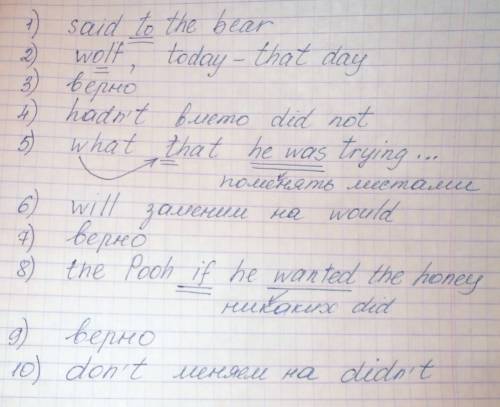 1) said to the bear
2) wolf, today - that day
3) верно
4) hadn't вместо did not
5) what that he was trying...
поменять местами
6) will заменим на would
7) верно
8) the Pooh if he wanted the honey
никаких did
9) верно
10) don't меняем на didn't